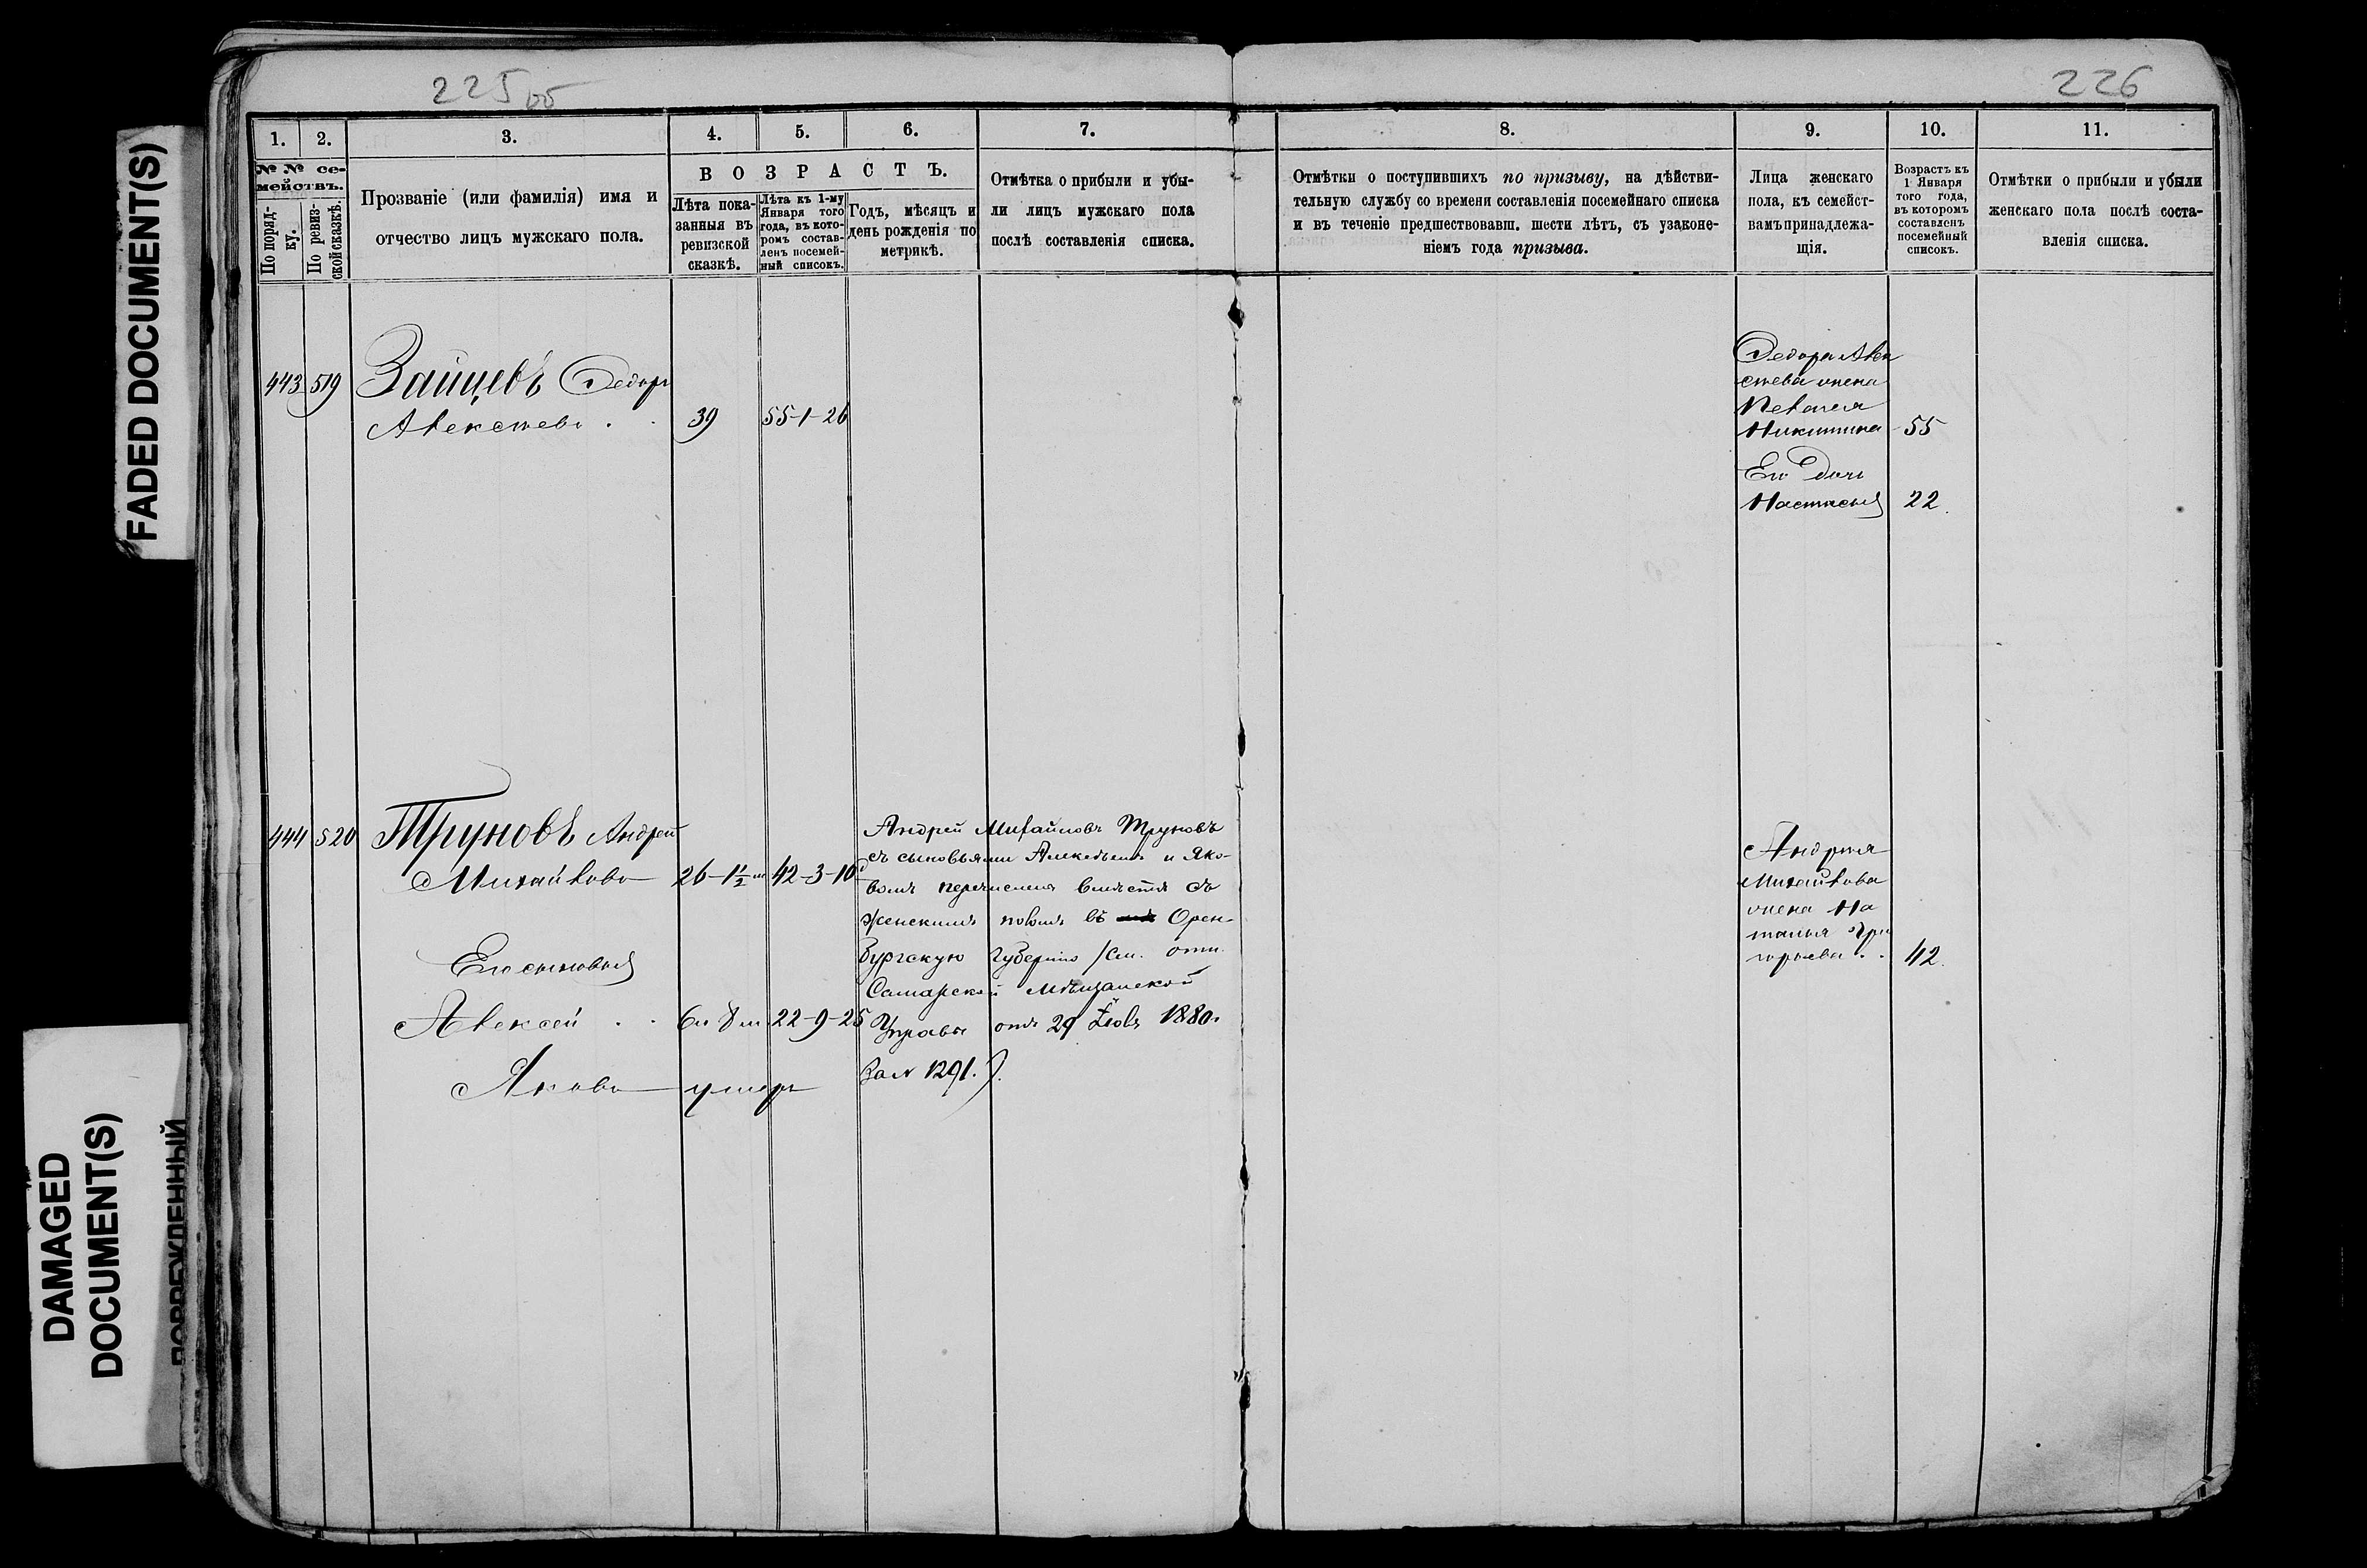 225 об
226
FADED DOCUMENT(S)
DAMAGED
DOCUMENT(S)
1.
2.
3.
4.
5.
6.
7.
8.
9.
10.
11.
№ № се-
мействъ.
По поряд-
ку.
По ревиз-
ской сказкѣ.
Прозваніе (или фамилія) имя и
отчество лицъ мужскаго пола.
ВОЗРАСТЪ.
Лѣта пока-
занныя въ
ревизской
сказкѣ.
Лѣта къ 1-му
Января того
года, въ кото-
ромъ состав-
ленъ посемей-
ный списокъ.
Годъ, мѣсяцъ и
день рожденія по
метрикѣ.
Отмѣтка о прибыли и убы-
ли лицъ мужскаго пола
послѣ составленія списка.
Отмѣтки о поступившихъ по призыву, на дѣйстви-
тельную службу со времени составленія посемейнаго списка
и въ теченіе предшествовавш. шести лѣтъ, съ узаконе-
ніемъ года призыва.
Лица женскаго
пола, къ семейст-
вамъ принадлежа-
щія.
Возрастъ къ
1 Января
того года,
въ которомъ
составленъ
посемейный
списокъ.
Отмѣтки о прибыли и убыли
женскаго пола послѣ соста-
вленія списка.
443 519 Зайцевъ Федоръ
Алексѣевъ . . 39 55-1-26
Федора Алек
сѣева жена
Пелагея
Никитина 55
Его дочь
Настасья 22.
444 520 Труновъ Андрей
Михайловъ 26-1½ м 42-3-10
Его сыновья
Алексей . . 6л 8 м 22-9-25
Яковъ умеръ
Андрей Михайловъ Труновъ
съ сыновьями Алексѣемъ и Яко-
вомъ перечисленъ вмѣстѣ съ
женскимъ поломъ въ Орен-
бургскую Губернію /см. отн.
Самарской Мѣщанской
Управы отъ 29 1880.
За № 1291.).
Андрея
Михайлова
жена На
талья Гри
горьева . . 42.